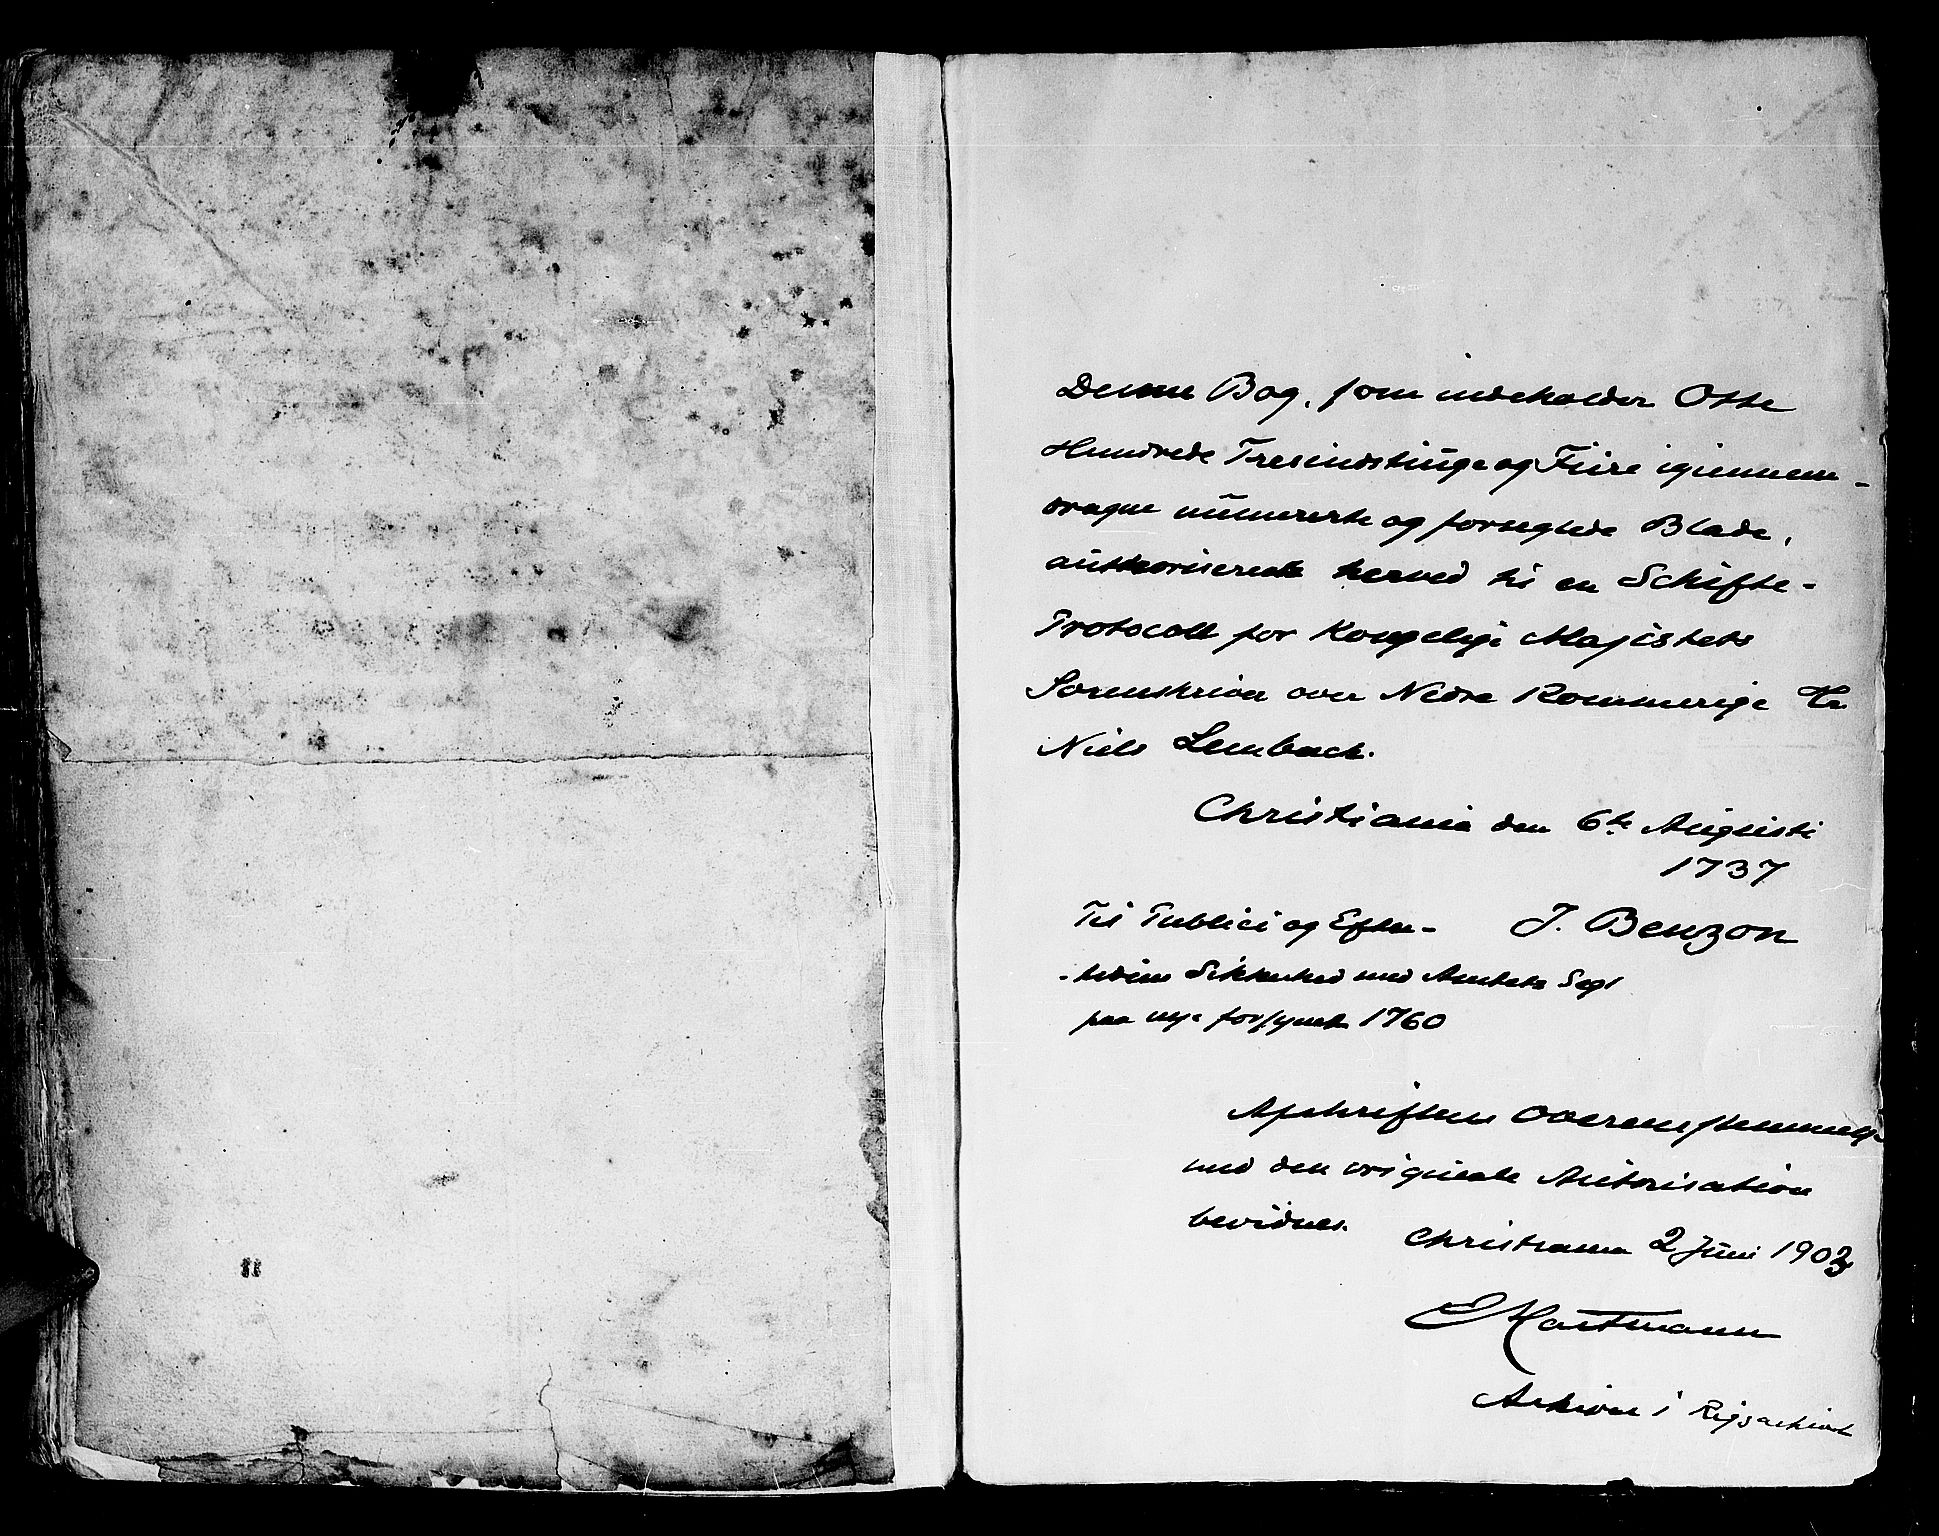 Denne Bog, som indeholder Otte
Hundrede Tresindstiuge og Fiire igiennem-
dragne numererte og forseglede Blade,
authoriserede herved til en Schifte-
Protocoll for Kongelige Majestets
Sorenskriver over Nedre Rommerige Hr
Niels Lembach.
Christiania den 6te Augusti
1737
Til Publici og Efter- J. Benzon
-tidens Sikkerhed med Amtets Segl
paa nye forsynet 1760
Afskriftens Overensstemmelse
med den originale Autorisation
bevidnes.
Christiania 2 Juni 1903
Hartmann
Arkivar i Rigsarkivet